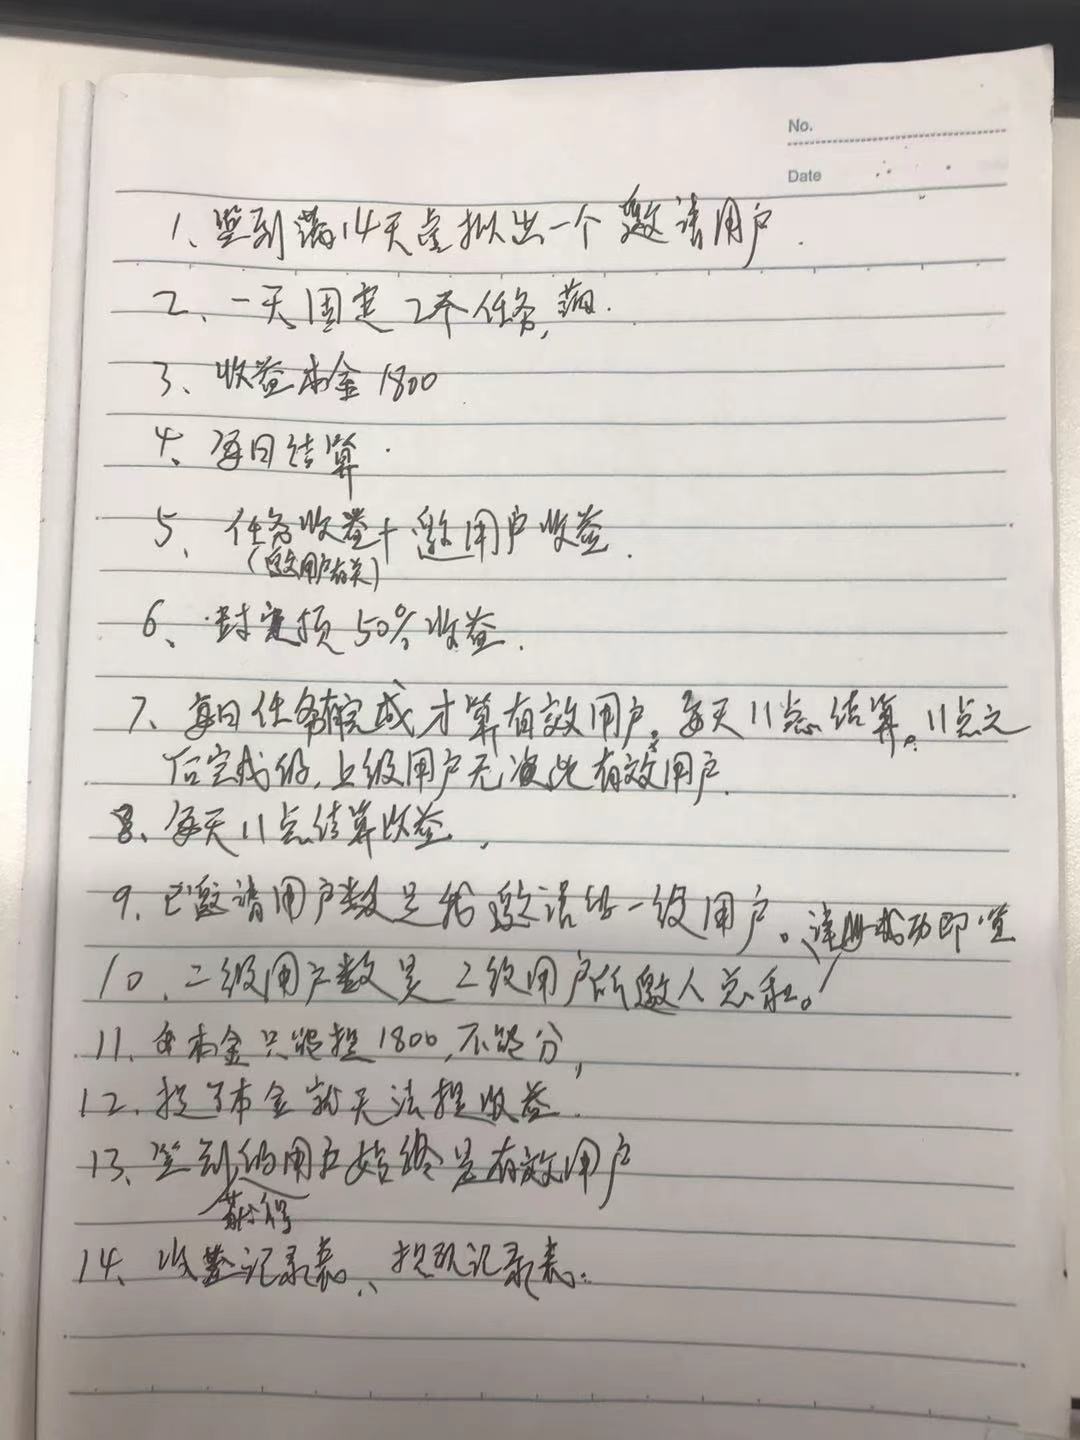 No.
Date
1、签到满14天虚拟出一个邀请用户.
2、一天固定2个任务,
3、收益本金1800
4、每日结算.
5、任务收益+邀用户收益.
(邀用户有关)
6、封定损50%收益.
7、每日任务有完成才算有效用户。每天11点结算。11点之
后完成的,上级用户无演此有效用户.
8、每天11点结算收益.
9、已邀请用户数是我邀请的一级用户。注册成功即算
10、二级用户数是2级用户所邀人总和。
11、每本金只能提1800,不能分,
12、提了本金就无法提收益.
13、签到的用户始终是有效用户
获得
14、收益记录表、提现记录表.